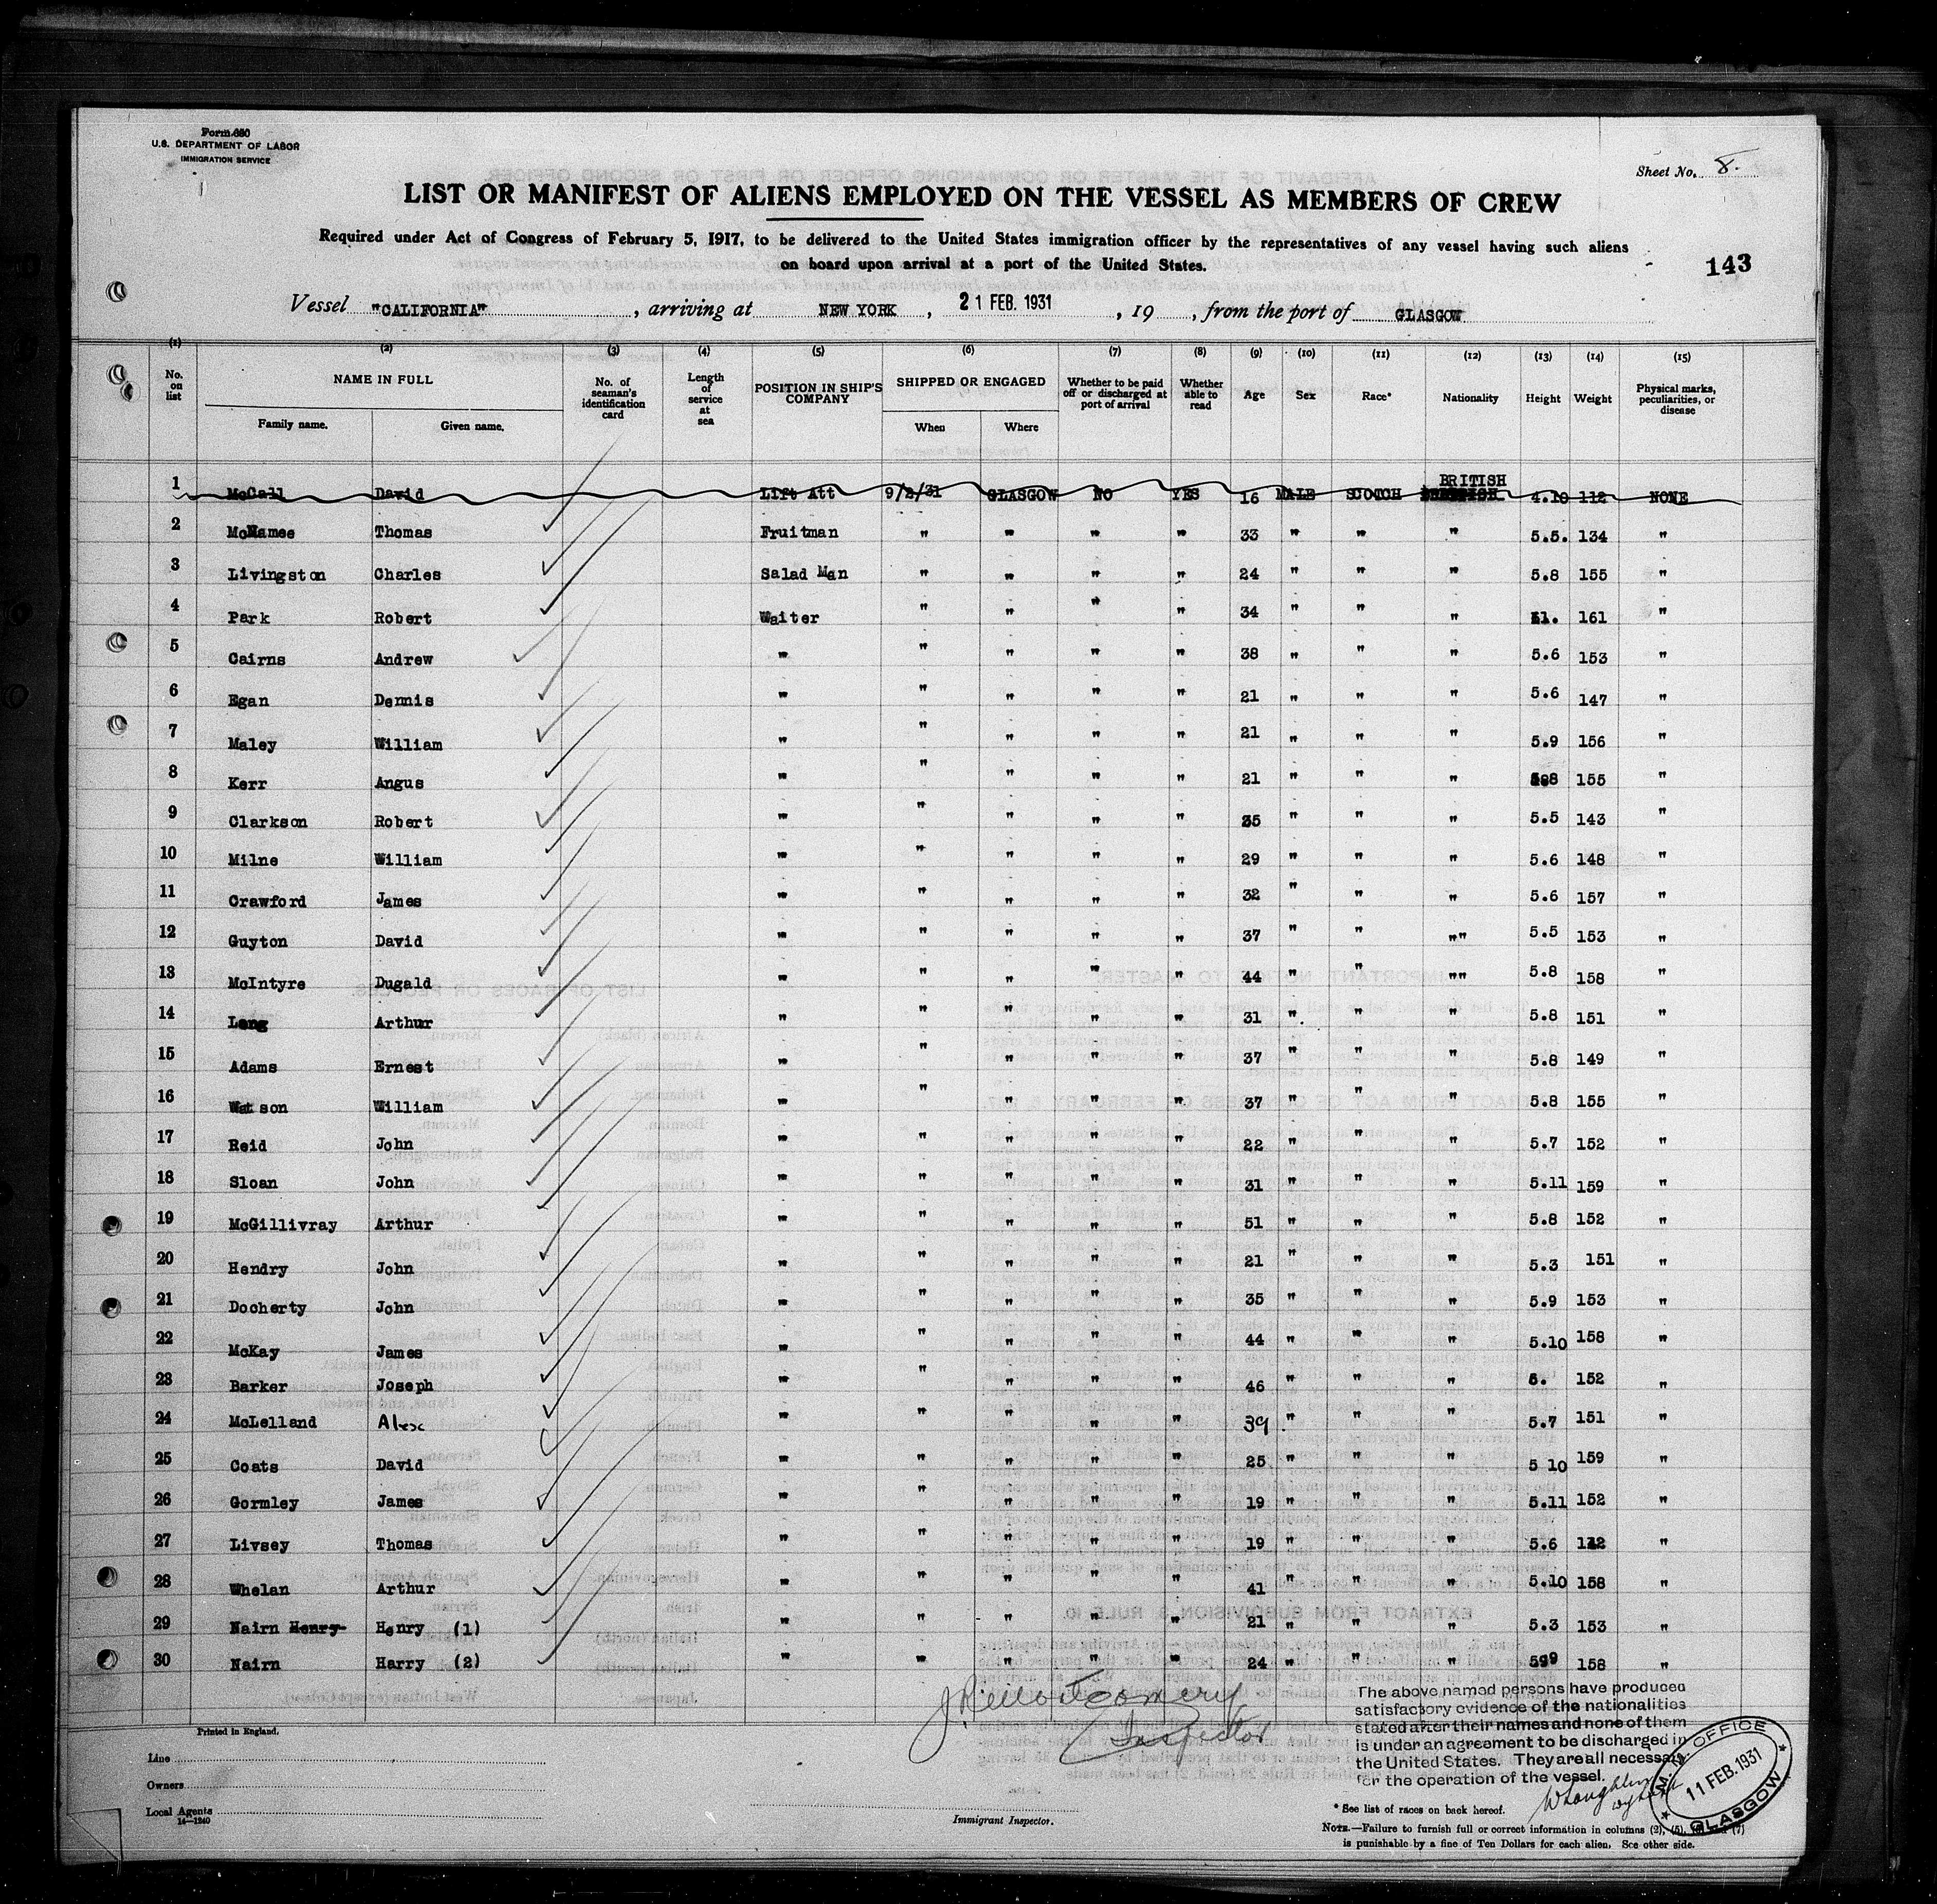 Form 680
U.S. DEPARTMENT OF LABOR
IMMIGRATION SERVICE
Sheet No. 8.
LIST OR MANIFEST OF ALIENS EMPLOYED ON THE VESSEL AS MEMBERS OF CREW
Required under Act of Congress of February 5, 1917, to be delivered to the United States immigration officer by the representatives of any vessel having such aliens
on board upon arrival at a port of the United States.
143
Vessel "CALIFORNIA", arriving at NEW YORK, 21 FEB. 1931, 19 , from the port of GLASGOW
(1) (2) (3) (4) (5) (6) (7) (8) (9) (10) (11) (12) (13) (14) (15)
No. on list NAME IN FULL Family name. Given name. No. of seaman's identification card Length of service at sea POSITION IN SHIP'S COMPANY SHIPPED OR ENGAGED When Where Whether to be paid off or discharged at port of arrival Whether able to read Age Sex Race* Nationality Height Weight Physical marks, peculiarities, or disease
1 McCall David Lift Att 9/2/31 GLASGOW NO YES 16 MALE SCOTCH BRITISH 4.10 112 NONE
2 McNamee Thomas Fruitman " " " " 33 " " " 5.5. 134 "
3 Livingston Charles Salad Man " " " " 24 " " " 5.8 155 "
4 Park Robert Waiter " " " " 34 " " " 161 "
5 Cairns Andrew " " " " " 38 " " " 5.6 153 "
6 Egan Dennis " " " " " 21 " " " 5.6 147 "
7 Maley William " " " " " 21 " " " 5.9 156 "
8 Kerr Angus " " " " " 21 " " " 155 "
9 Clarkson Robert " " " " " 35 " " " 5.5 143 "
10 Milne William " " " " " 29 " " " 5.6 148 "
11 Crawford James " " " " " 32 " " " 5.6 157 "
12 Guyton David " " " " " 37 " " "" 5.5 153 "
13 McIntyre Dugald " " " " " 44 " " "" 5.8 158 "
14 Arthur " " " " " 31 " " " 5.8 151 "
15 Adams Ernest " " " " " 37 " " " 5.8 149 "
16 Watson William " " " " " 37 " " " 5.8 155 "
17 Reid John " " " " " 22 " " " 5.7 152 "
18 Sloan John " " " " " 31 " " " 5.11 159 "
19 McGillivray Arthur " " " " " 51 " " " 5.8 152 "
20 Hendry John " " " " " 21 " " " 5.3 151 "
21 Docherty John " " " " " 35 " " " 5.9 153 "
22 McKay James " " " " " 44 " " " 5.10 158 "
23 Barker Joseph " " " " " 46 " " " 152 "
24 McLelland Alex " " " " " 39 " " " 5.7 151 "
25 Coats David " " " " " 25 " " " 5 10 159 "
26 Gormley James " " " " " 19 " " " 5.11 152 "
27 Livsey Thomas " " " " " 19 " " " 5.6 "
28 Whelan Arthur " " " " " 41 " " " 5.10 158 "
29 Nairn Henry Henry (1) " " " " " 21 " " " 5.3 153 "
30 Nairn Harry (2) " " " " " 24 " " " 158 "
J R Montgomery
Inspector
The above named persons have produced
satisfactory evidence of the nationalities
stated after their names and none of them
is under an agreement to be discharged in
the United States. They are all necessary
for the operation of the vessel.
M. M. OFFICE
11 FEB. 1931
GLASGOW
Printed in England.
Line
Owners
Local Agents
14—1240
Immigrant Inspector.
* See list of races on back hereof.
NOTE.—Failure to furnish full or correct information in columns (2), (5), (7)
is punishable by a fine of Ten Dollars for each alien. See other side.